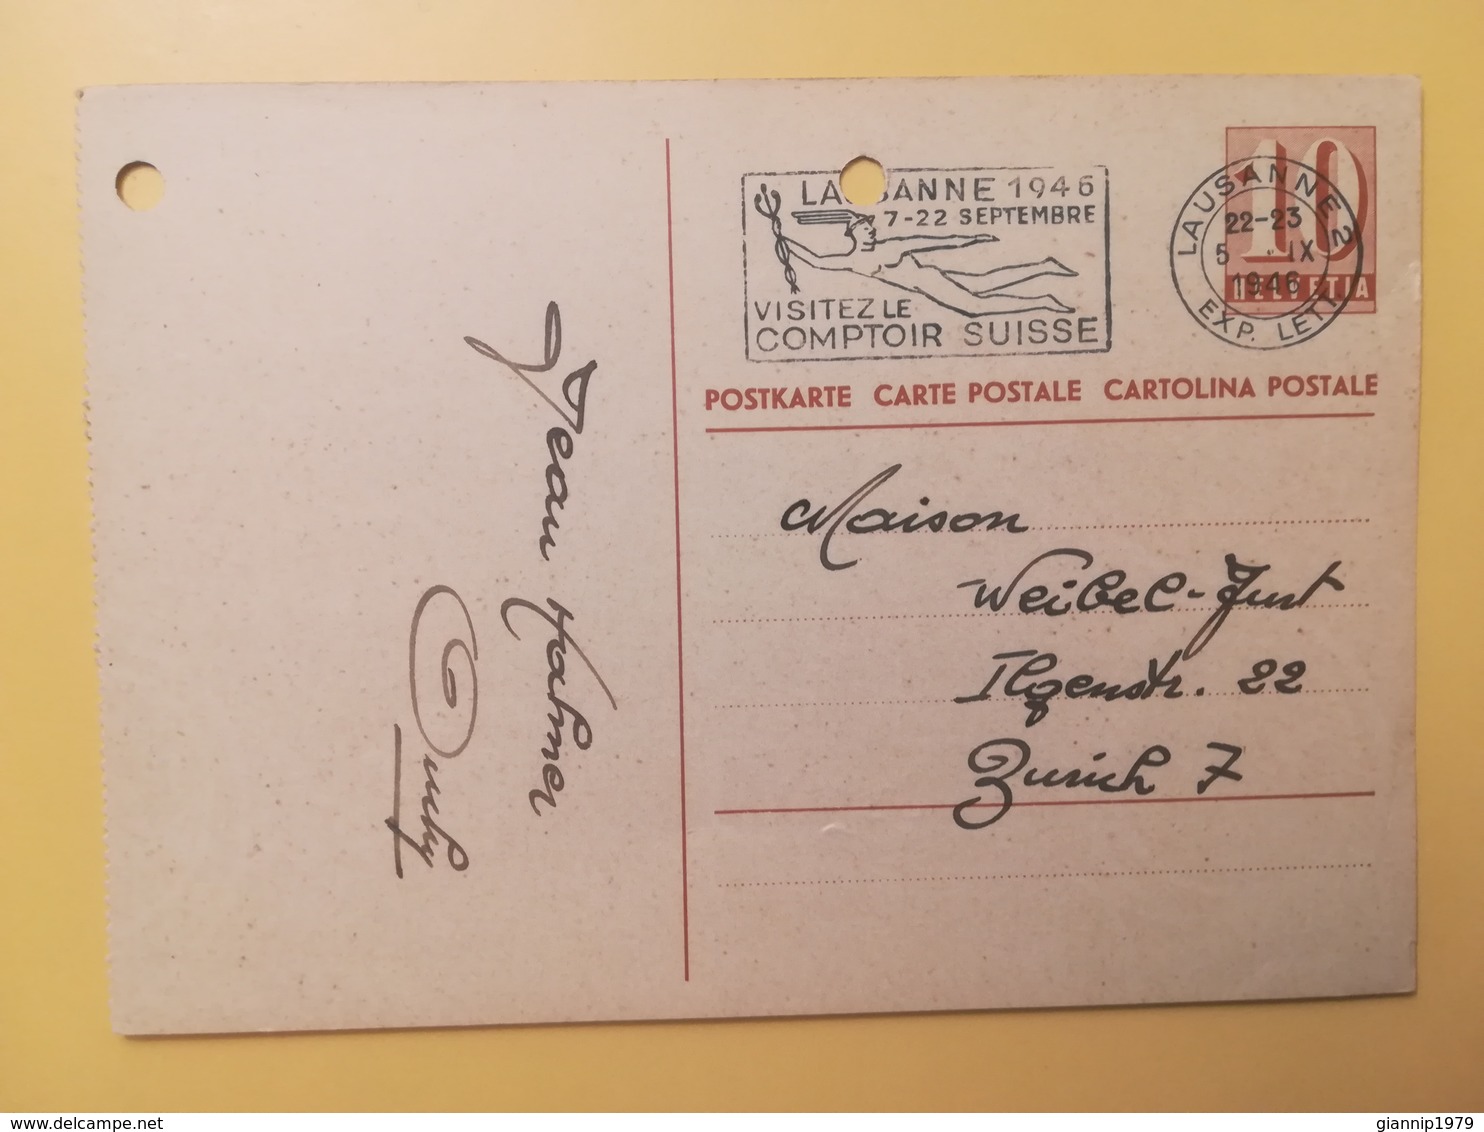 LAUSANNE 1946
7-22 SEPTEMBRE
VISITEZ LE
COMPTOIR SUISSE
LAUSANNE 2
22-23
5 . IX
1946
EXP. LETT.
10
HELVETIA
POSTKARTE CARTE POSTALE CARTOLINA POSTALE
Maison
Weibel-Just
Ilgenstr. 22
Zurich 7
Jean
Ouchy
www.delcampe.net
giannip1979